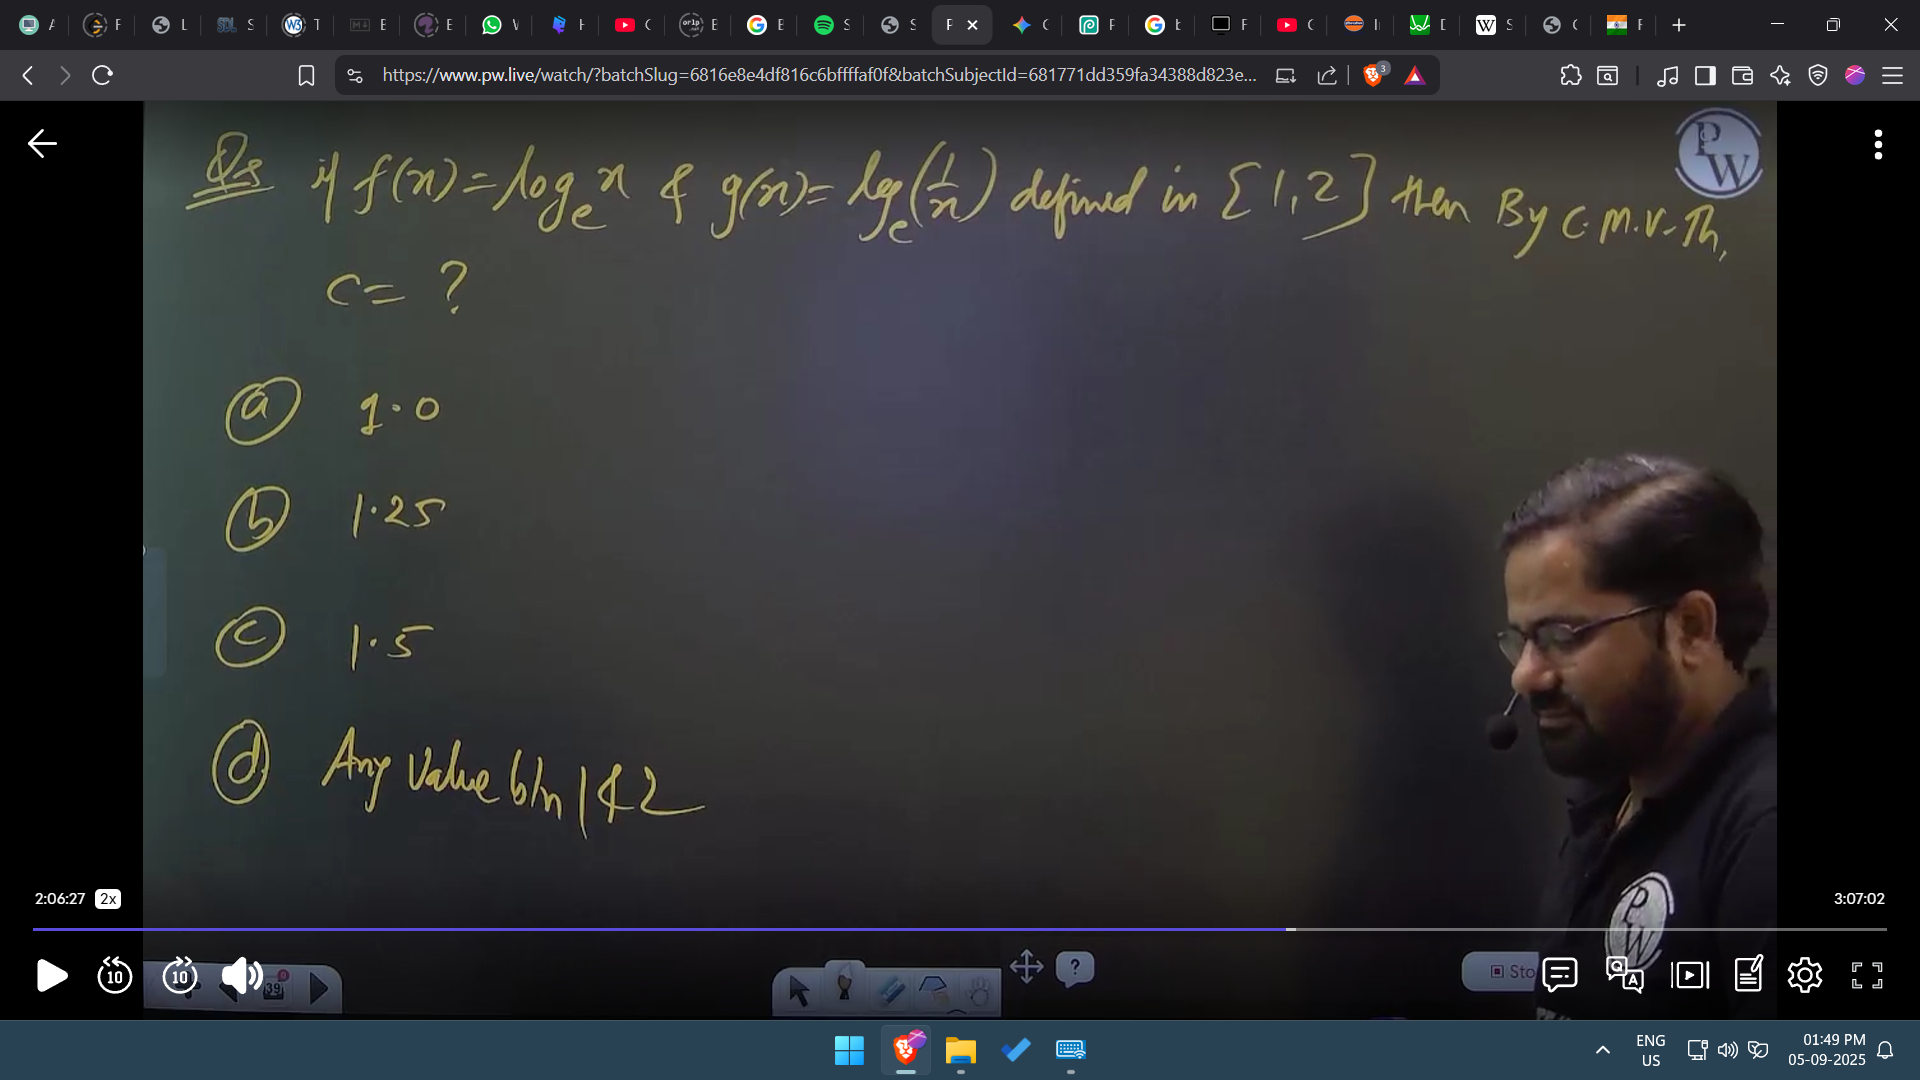 https://www.pw.live/watch/?batchSlug=6816e8e4df816c6bffffaf0f&batchSubjectId=681771dd359fa34388d823e...
3
PW
Q3 if f(x)=logₑx & g(x)=logₑ(1/x) defined in [1,2] then By C.M.V-Th,
c= ?
ⓐ 1.0
ⓑ 1.25
ⓒ 1.5
ⓓ Any value b/n 1&2
2:06:27 2x
3:07:02
PW
10
10
39
?
Sto
ENG
US
01:49 PM
05-09-2025